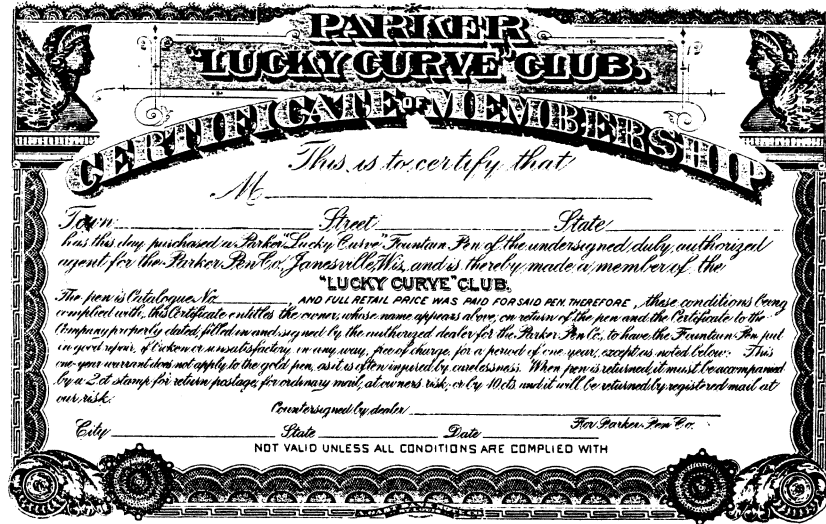 PARKER
"LUCKY CURVE" CLUB.
CERTIFICATE OF MEMBERSHIP
This is to certify that
M
Town Street State
has this day purchased a Parker "Lucky Curve" Fountain Pen of the undersigned, duly authorized
agent for the Parker Pen Co. Janesville, Wis, and is thereby made a member of the
"LUCKY CURVE" CLUB.
The pen is Catalogue No. , AND FULL RETAIL PRICE WAS PAID FOR SAID PEN THEREFORE, these conditions being
complied with, this Certificate entitles the owner, whose name appears above, on return of the pen and the Certificate to the
Company properly dated, filled in and signed by the authorized dealer for the Parker Pen Co., to have the Fountain Pen put
in good repair, if broken or unsatisfactory in any way, free of charge, for a period of one year, except as noted below: This
one-year warrant does not apply to the gold pen, as it is often injured by carelessness. When pen is returned, it must be accompanied
by a 2ct stamp for return postage, for ordinary mail, at owners risk, or by 10cts and it will be returned by registered mail at
our risk.
Countersigned by dealer
City State Date For Parker Pen Co.
NOT VALID UNLESS ALL CONDITIONS ARE COMPLIED WITH